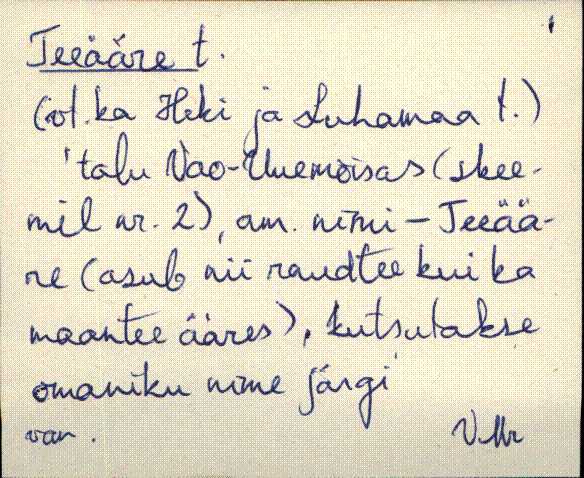 Teeääre t.
(vt. ka Heki ja Luhamaa t.)
'talu Vao-Uuemõisas (skee-
mil nr. 2), am. nimi - Teeää-
re (asub nii raudtee kui ka
maantee ääres), kutsutakse
omaniku nime järgi'
van. V.Mr